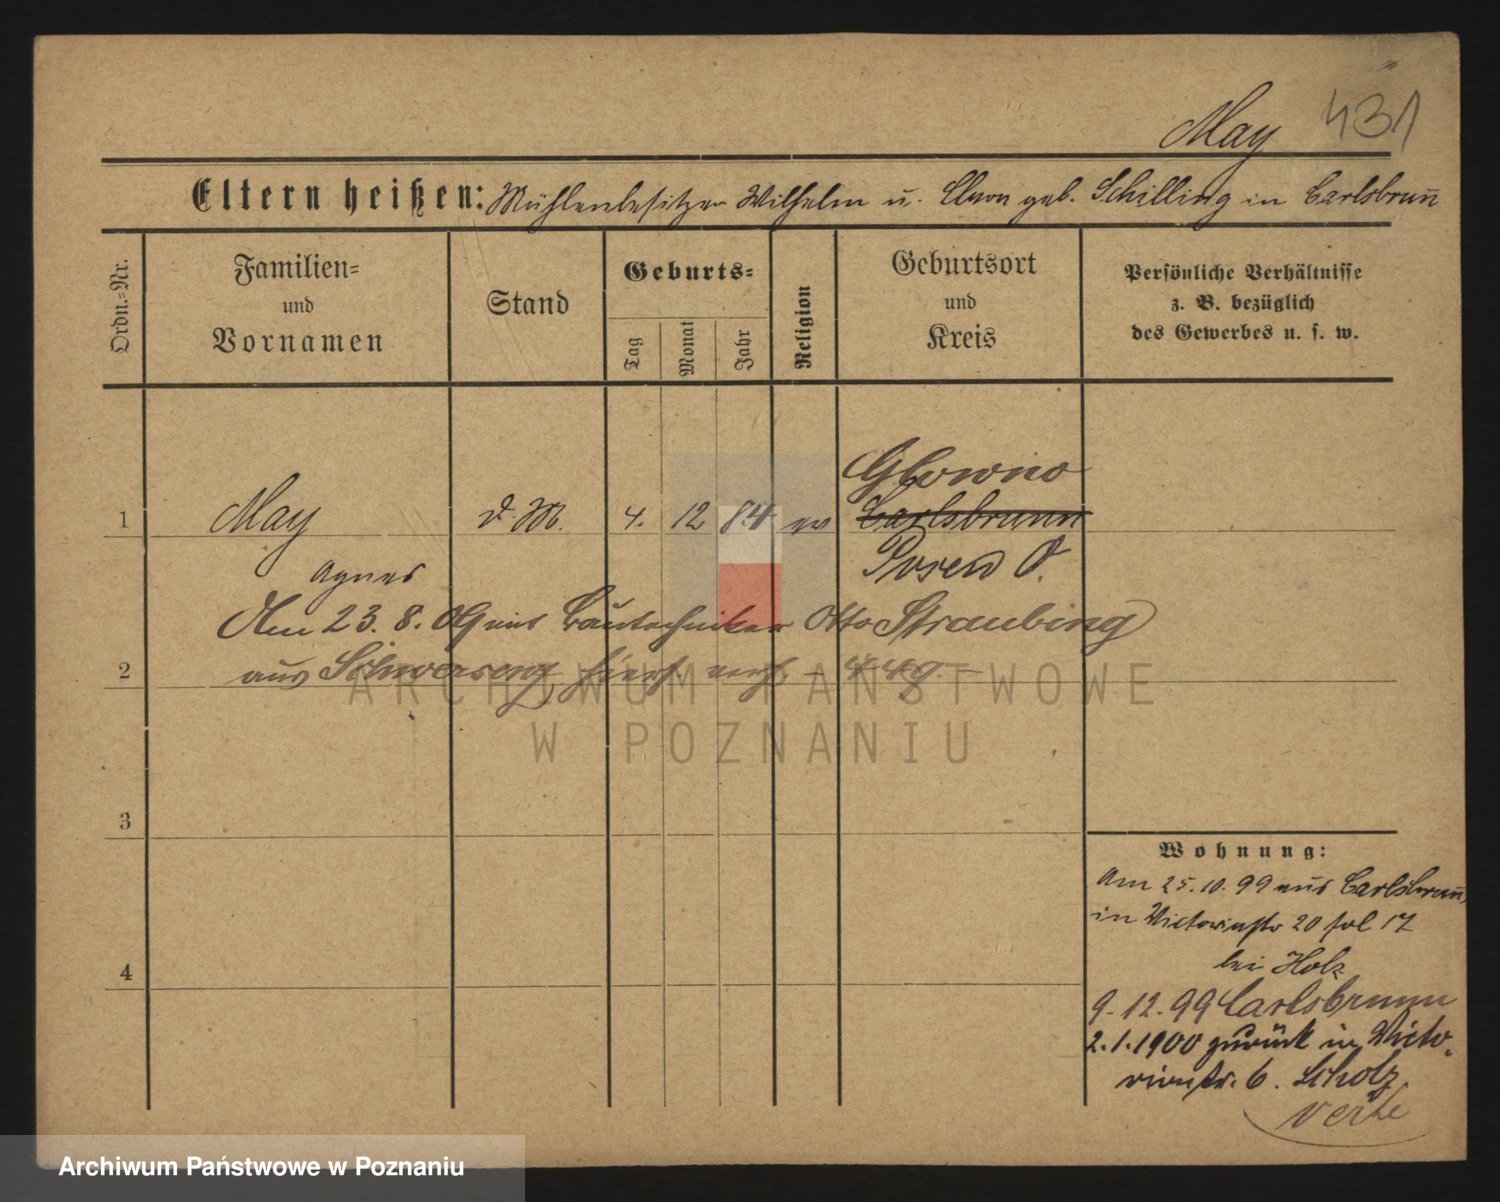 431
May
Eltern heißen: Mühlenbesitzer Wilhelm u. Clara geb. Schilling in Carlsbrun̄
Ordn.=Nr.
Familien=
und
Vornamen
Stand
Geburts=
Tag
Monat
Jahr
Religion
Geburtsort
und
Kreis
Persönliche Verhältnisse
z. B. bezüglich
des Gewerbes u. s. w.
Glowno
1 May d. M. 4. 12 84 ev Carlsbrunn
Agnes Posen O.
Am 23. 8. 09 mit Bautechniker Otto Straubing
2 aus Schwersenz hiers. verh. - 449. -
3
4
Wohnung:
Am 25.10.99 aus Carlsbrun̄
in Victoriastr 20 fol 17
bei Holz
9.12.99 Carlsbrunn
2.1.1900 zurück in Victo-
riastr. 6. Scholz
verte
ARCHIWUM PAŃSTWOWE
W POZNANIU
Archiwum Państwowe w Poznaniu